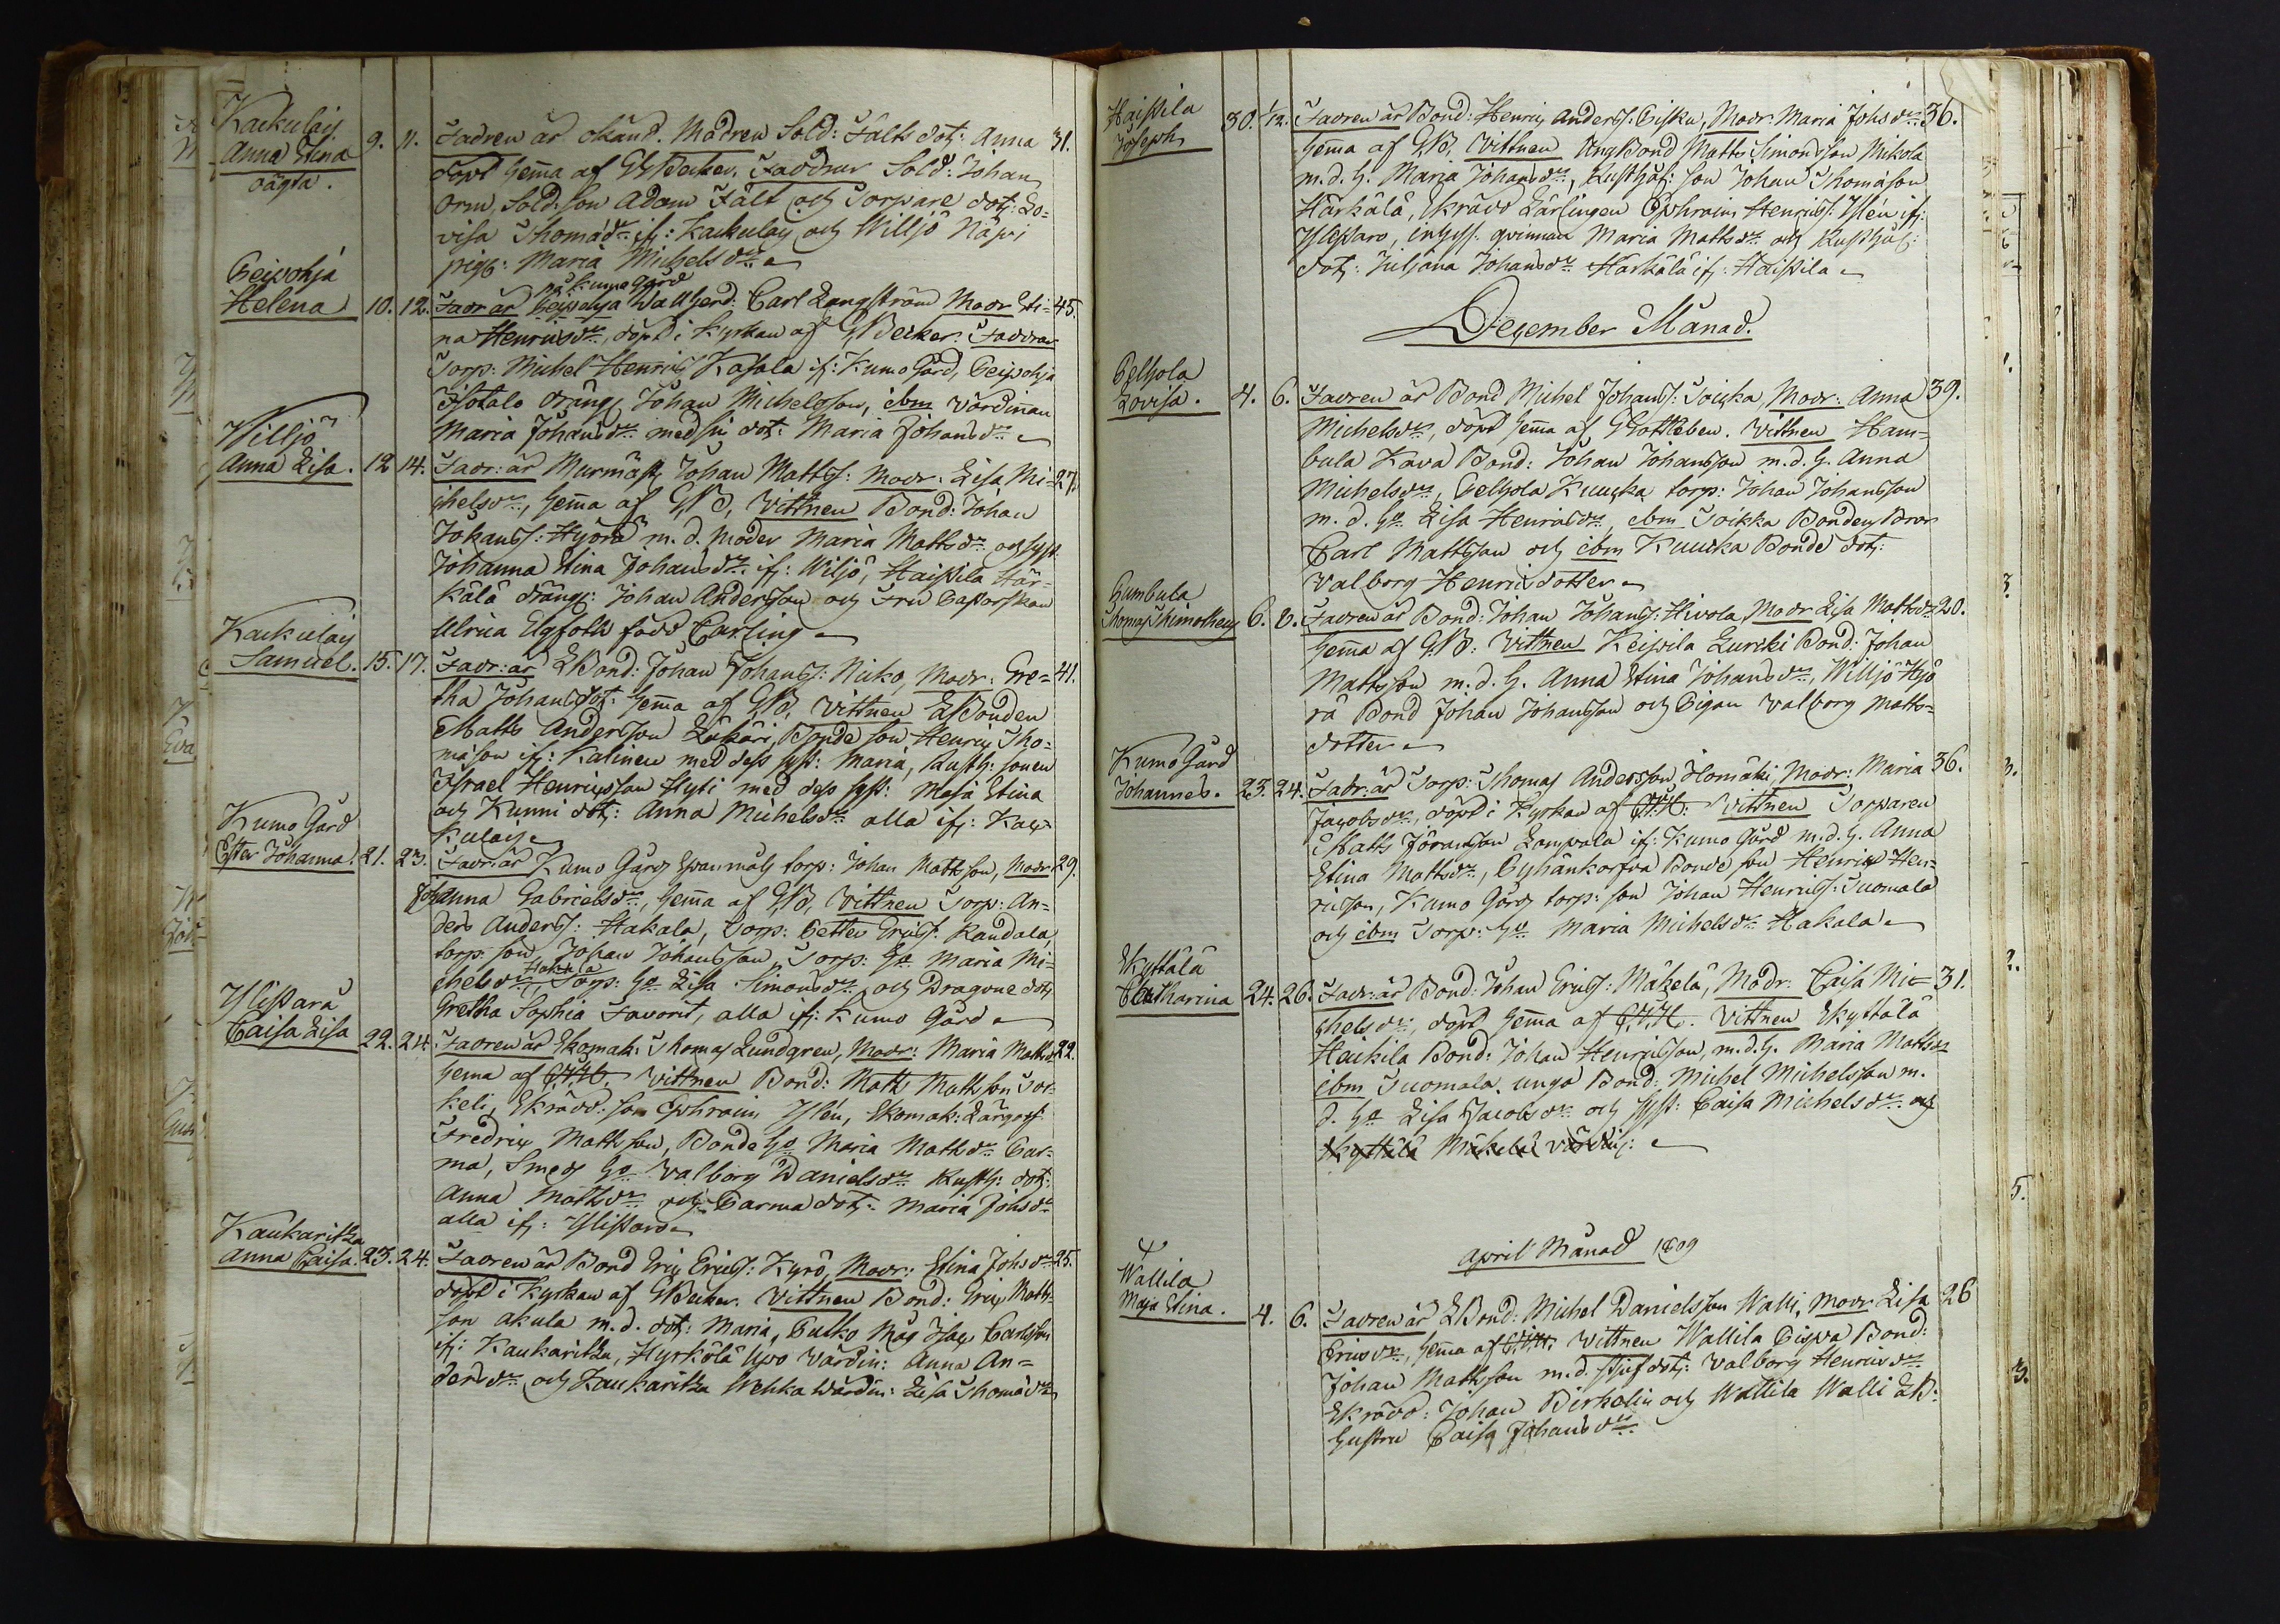 Kackulais
Anna Stina
oägta.
9. 11. Fadren är okänd. Modren Sold: Fälts dotr: Anna 31.
döpt hema af GBecker. Faddrar Sold: Johan
Orm, Sold:son Adam Fält och Torpare dotr: Lo=
visa Thomædr if: Kackulais och Willjö Näpi
pig: Maria Michelsdr
Peipohja
Helena 10. 12. Fadr är Peipohja Wallgerd: Carl Langström Modr Sti= 45.
på Kumo Gård
na Henricsdr, döpt i Kyrkan af GBecker. Faddrar
Torp: Michel Henrics Kasala if: Kumo Gård, Peipohja
Isotalo dräng Johan Michelsson, ibm Värdinan
Maria Johansdr med sin dotr: Maria Johansdr
Willjö
Anna Lisa. 12 14. Fadr: är Murmäst Johan Mattss: Modr: Lisa Mi= 27.
chelsdr, hema af GB, Vittnen Bond: Johan
Johanss: Hyörä m. d. moder Maria Mattsdr och Syst.
Johanna Stina Johansdr. if: Wiljö, Haistila Här=
kälä dräng: Johan Andersson och Fru Pastorskan
Ulrica Elgfoth född Carling
Kackulais
Samuel. 15. 17. Fadr: är LBond: Johan Johanss: Nicko, Modr: Gre= 41.
tha Johansdotr: hema af GB, Vittnen LBonden
Matts Andersson Lukäri, Bonde son Henric Tho=
mason if: Kalinen med dess syst: Maria, Rusth: sonen
Israel Henricsson Hyti med dess syst: Maja Stina
och Kunni dotr: Anna Michelsdr alla if: Kac=
kulais
Kumo Gård
Ester Johanna. 21. 23. Fadr: är Kumo Gårds torp: Johan Mattsson, Modr: 29.
Johanna Gabrielsdr, hema af GB, Vittnen Torp: An=
ders Anderss: Hakala, Torp: Petter Ericss: Randala,
torp: son Johan Johansson, Torp: Ha Maria Mi=
chelsdr Hakala, Torp: Ha Lisa Simonsdr, och Dragone dotr
Gretha Sophia Favorit, alla if: Kumo Gård
Ylistaro
Caisa Lisa 22. 24. Fadren är Skomak: Thomas Lundgren, Modr: Maria Mattsdr 22.
hema af Vittnen Bond: Matts Mattsson Tor=
keli, Skrädd: son Ephraim Ylén, Skomak: Lärgoss:
Fredric Mattsson, Bonde Ho Maria Mattsdr Par=
ma, Smeds Ho Valborg Danielsdr Rusth: dotr:
Anna Mattsdr och Parma dotr: Maria Johsdr
alla if: Ylistaro
Kaukaritza
Anna Caisa. 23. 24. Fadren är Bond Eric Ericss: Kyrö, Modr: Stina Johsdr 25.
döpt i Kyrkan af GBecker. Vittnen Bond: Eric Matts=
son Akula m. d. dotr: Maria, Pulko Måg Isac Carlsson
if: Kaukaritza, Hyrkölä Upo Värdin: Anna An=
dersdr och Kaukaritza Uchka Wärdin: Lisa Thomædr
Haistila
Joseph 30. 1/12. Fadren är Bond: Henric Anderss: Piska, Modr: Maria Johsdr 36.
hema af GB. Vittnen Ung Bond Matts Simonsson Mikola
m. d. H. Maria Johansdr, Rusthåls: son Johan Thomason
Härkälä, Skrädd Lärlingen Ephraim Henricss: Ylén if:
Ylistaro, Inhys qvinnan Maria Mattsdr och Rusthål:
dotr: Juliana Johansdr Härkälä if: Haistila
December Månad.
Pelhola
Lovisa. 4. 6. Fadren är Bond Michel Johanss: Soicka, Modr: Anna 39.
Michelsdr, döpt hema af GRottkeben. Vittnen Ham=
bula Kava Bond: Johan Johansson m. d. H. Anna
Michelsdr, Pelhola Kuucka torp: Johan Johansson
m. d. Ho Lisa Henricsdr, ibm Soikka Bondens Bror
Carl Mattsson och ibm Kuucka Bonde dotr:
Valborg Henricsdotter
Cumbula
Thomas Thimotheus 6. 8. Fadren är Bond: Johan Johanss: Hivola, Modr Lisa Mattsdr 20.
hema af GB: Vittnen Keipila Lurcki Bond: Johan
Mattsson m. d. H. Anna Stina Johansdr, Willjö Hyö
rä Bond Johan Johansson och Pigan Valborg Matts=
dotter
Kumo Gård
Johannes. 23. 24. Fadr: är Torp: Thomas Andersson Homäki, Modr: Maria 36.
Jacobsdr, döpt i Kyrkan af Vittnen Torparen
Matts Göransson Lampala if: Kumo Gård m. d. H. Anna
Stina Mattsdr, Pyhänkorfva Bonde son Henric Hen=
ricsson, Kumo Gårds torp: son Johan Henricss: Tuomala
och ibm Torp: Ho Maria Michelsdr Hakala
Skyttälä
Catharina 24. 26. Fadr: är Bond: Johan Ericss: Mäkelä, Modr: Caisa Mic= 31.
helsdr, döpt hema af Vittnen Skyttälä
Heickila Bond: Johan Henricsson, m. d. H. Maria Mattsdr
ibm Tuomala unga Bond: Michel Michelsson m.
d. Ho Lisa Jacobsdr och Syst: Caisa Michelsdr och
Skyttälä Mäkelä värdin:
April Månad 1809
Wallila
Maja Stina. 4. 6. Fadren är LBond: Michel Danielsson Walli, Modr Lisa 26
Ericsdr, hema af Vittnen Wallila Pispa Bond:
Johan Mattsson m. d. stiufdotr: Valborg Henricsdr
Skrädd: Johan Birkelin och Wallila Walli LB:
hustru Caisa Johansdr